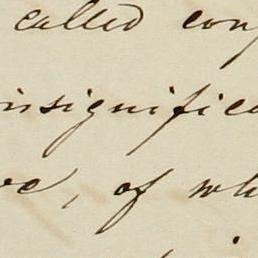 called conf
insignifica
ve, of wh